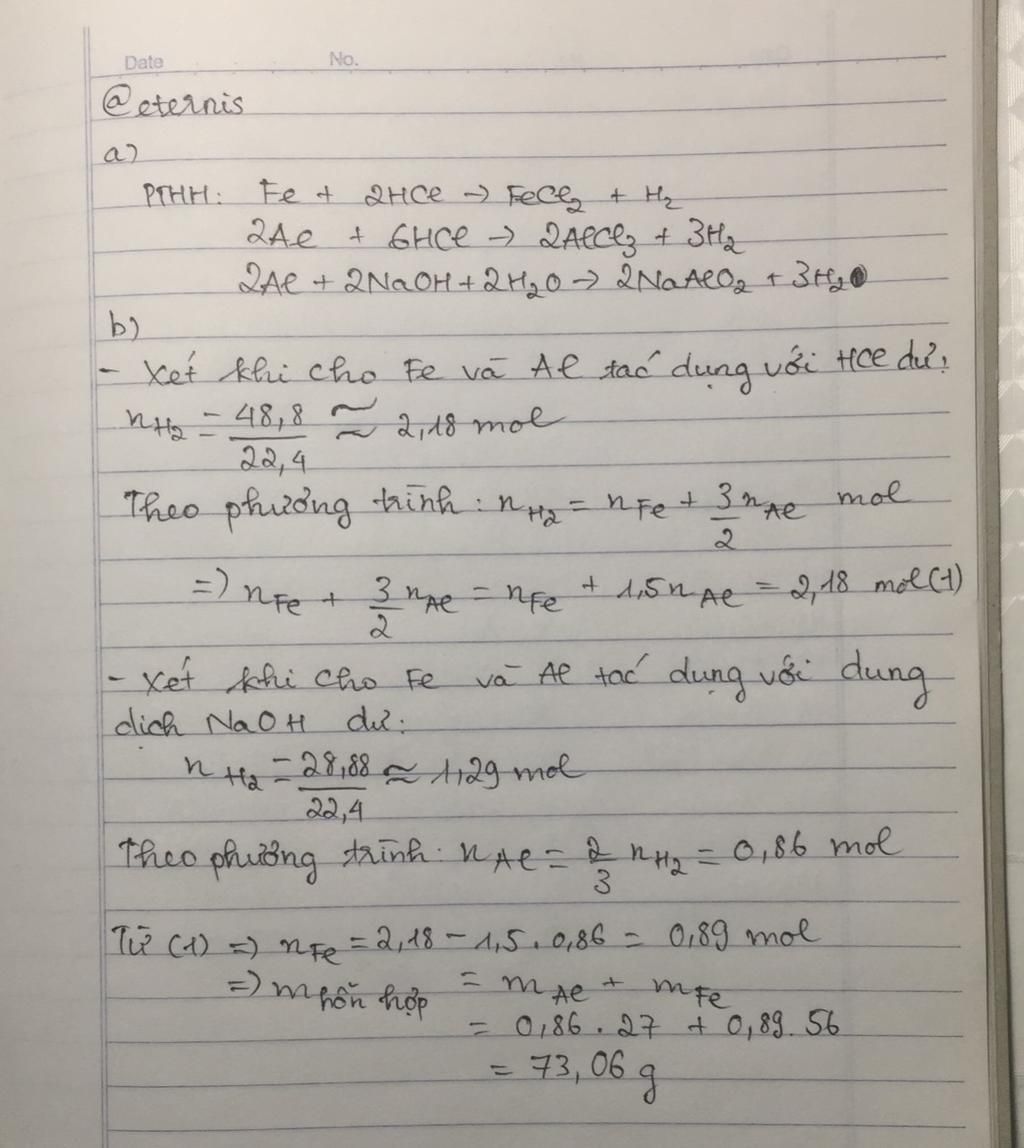 Date No.
@eternis
a)
PTHH: Fe + 2HCl → FeCl₂ + H₂
2Al + 6HCl → 2AlCl₃ + 3H₂
2Al + 2NaOH + 2H₂O → 2NaAlO₂ + 3H₂
b)
- Xét khi cho Fe và Al tác dụng với HCl dư:
n_H₂ = 48,8/22,4 ≈ 2,18 mol
Theo phương trình: n_H₂ = n_Fe + 3/2 n_Al mol
=> n_Fe + 3/2 n_Al = n_Fe + 1,5n_Al = 2,18 mol (1)
- Xét khi cho Fe và Al tác dụng với dung
dịch NaOH dư:
n_H₂ = 28,88/22,4 ≈ 1,29 mol
Theo phương trình: n_Al = 2/3 n_H₂ = 0,86 mol
Từ (1) => n_Fe = 2,18 - 1,5 . 0,86 = 0,89 mol
=> m hỗn hợp = m_Al + m_Fe
= 0,86 . 27 + 0,89 . 56
= 73,06 g